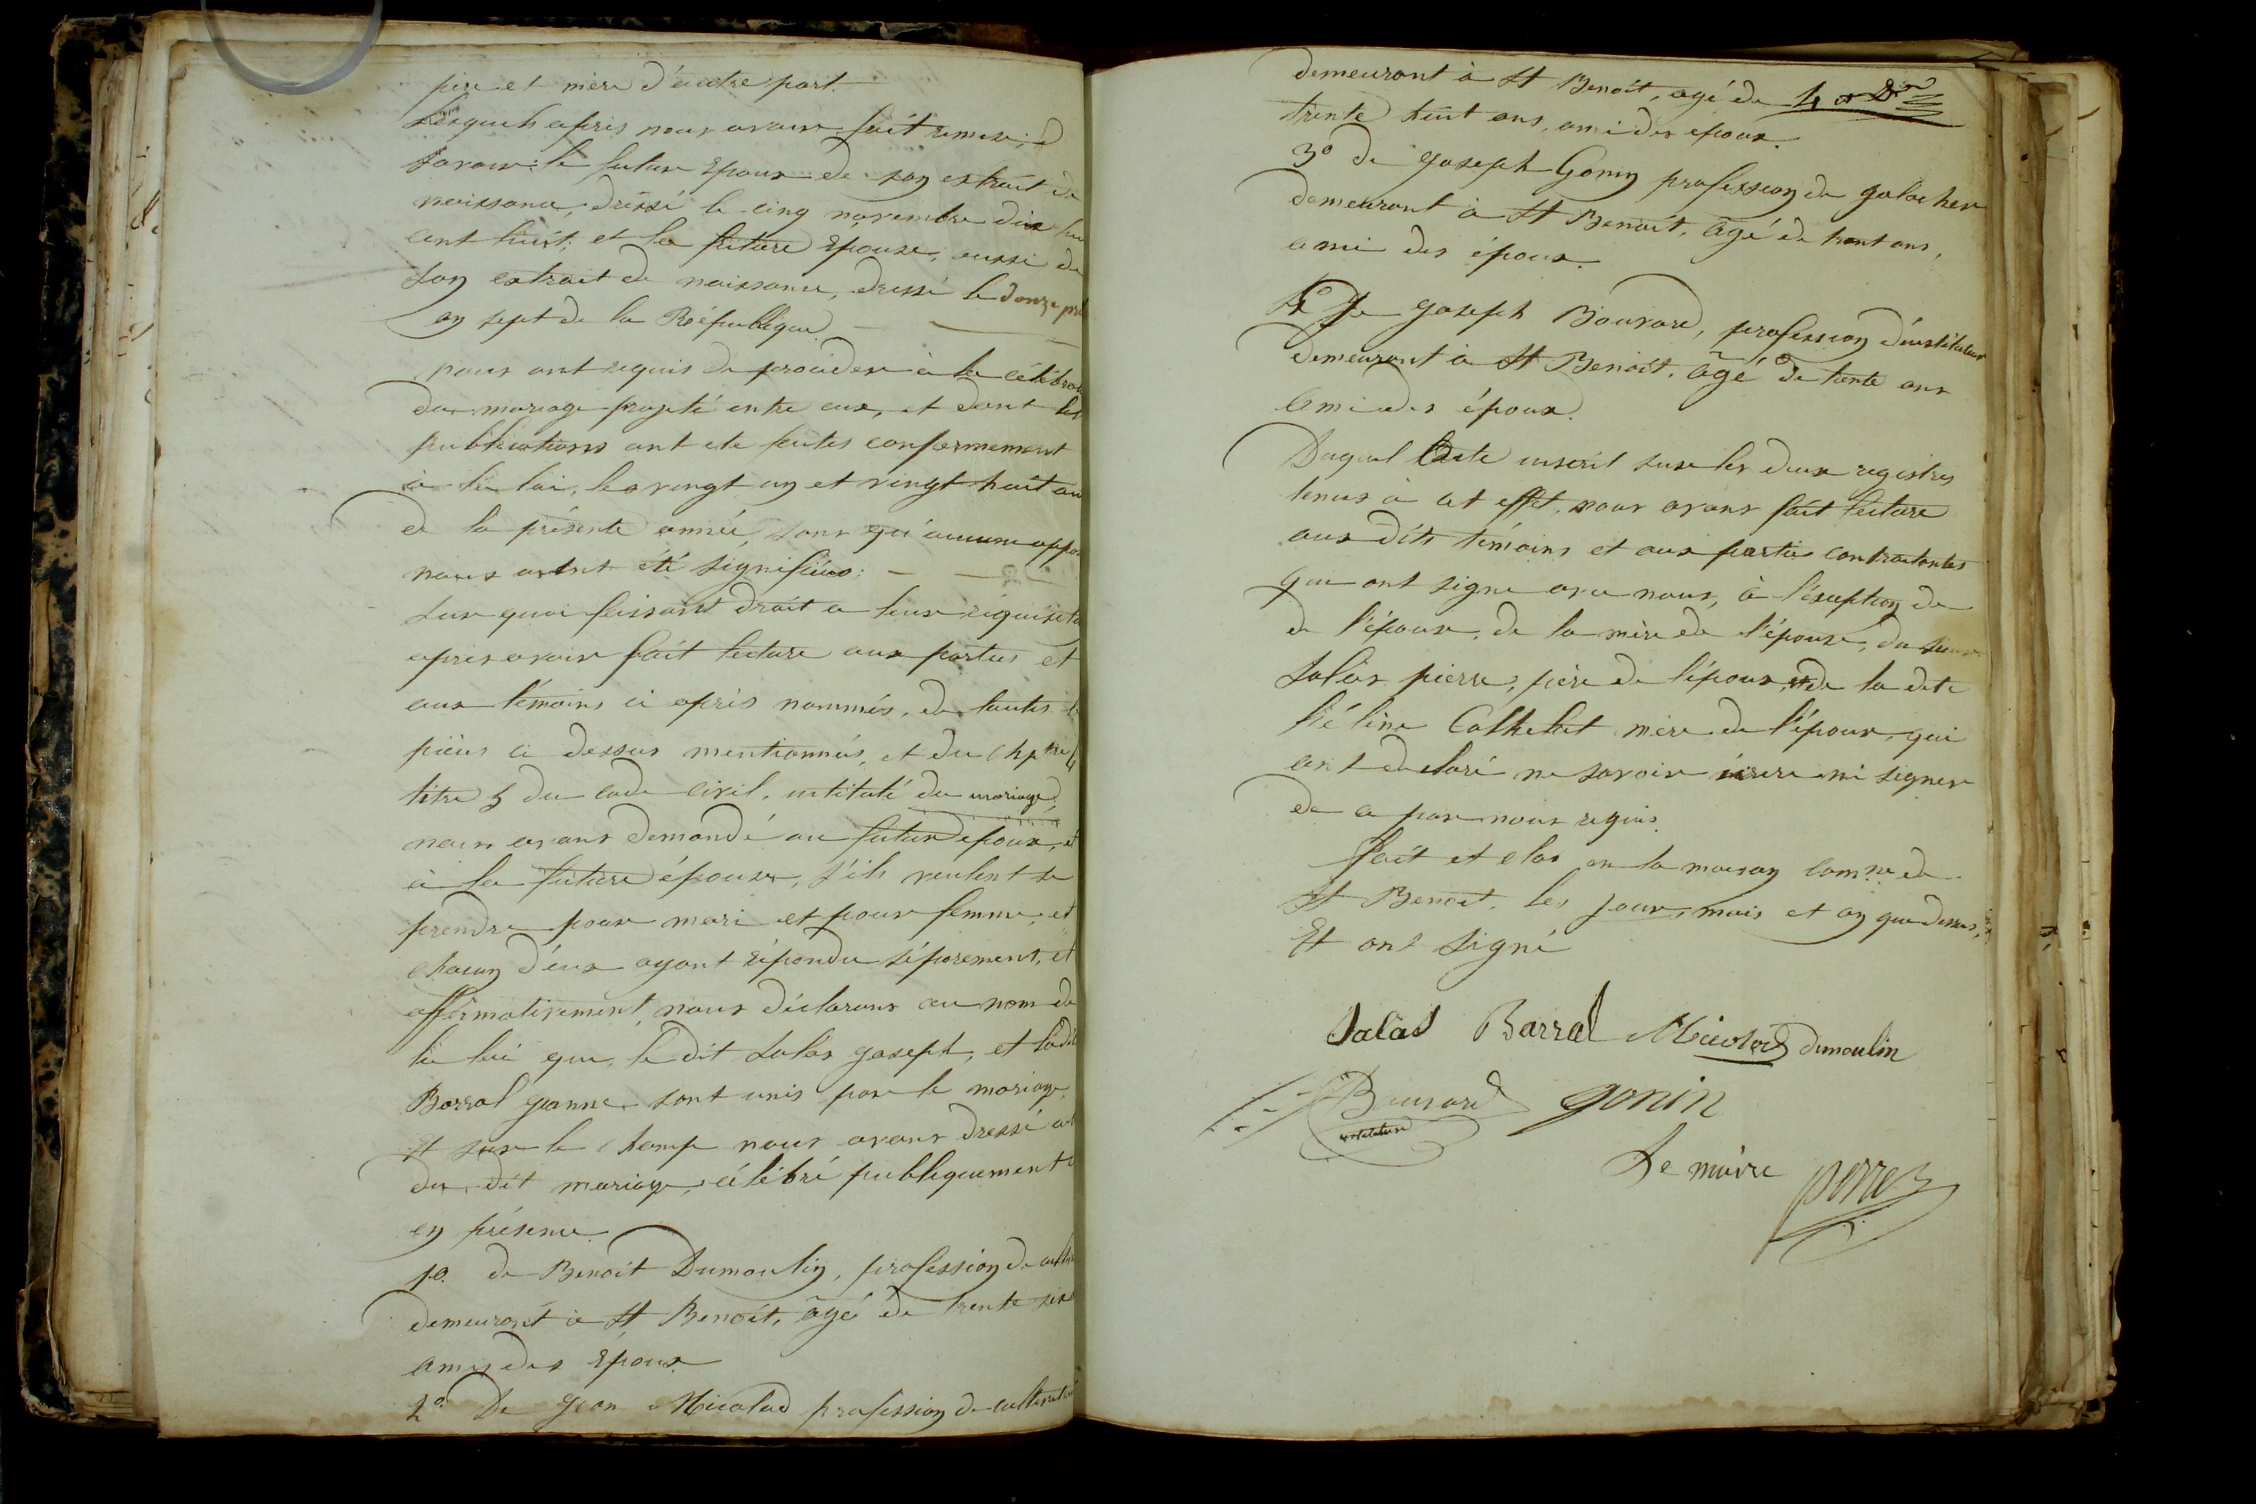 père et mère d'autre part.
Lesquels après nous avoir fait remise, d
savoir: le futur époux de son extrait de
naissance, dressé le cinq novembre dix hu
cent huit; et la future épouse, aussi de
son extrait de naissance, dressé le douze pr
an sept de la République
nous ont requis de procéder à la célébra
du mariage projeté entre eux, et dont les
publications ont été faites conformement
à la loi, les vingt un et vingt huit
de la présente année, sans qu'aucune oppo
nous aient été signifiées;
sur quoi faisant droit a leur réquisit
après avoir fait lecture aux parties et
aux témoins ci après nommés, de toutes
pièces ci dessus mentionnés, et du chp.tre 6
titre 5 du code civil, intitulé du mariage,
nous avons demandé au futur epoux, et
à la future épouse, s'ils veulent se
prendre pour mari et pour femme, et
chacun d'eux ayant répondu séparement, et
affirmativement, nous déclarons au nom de
la loi que, le dit Salas joseph, et ladit
Barral jeanne sont unis par le mariage.
Et sur le champ nous avons dressé act
du dit mariage, célébré publiquement
en présence
1o. de Benoit Dumoulin, profession de culti
demeurant à St Benoit, âgé de trente six
ami des époux
2o De Jean Micolod profession de cultivate
demeurant à St Benoit, agé de
trente huit ans, ami des epoux.
3o de joseph Gonin profession de galocher
demeurant à St Benoit, âgé de trent ans,
ami des époux.
4o De joseph Bouvard, profession d'instituteur
demeurant à St Benoit, âgé de trente ans
ami des époux.
Duquel acte inscrit sur les deux registres
tenus à cet effet, nous avons fait lecture
aux dits témoins et aux partie contractantes
qui ont signé avec nous, à l'exception de
de l'épouse, de la mère de l'épouse, du sieur
Salas pierre, père de l'époux, et de la dite
hélène Cathelet mère de l'époux, qui
ont declaré ne savoir écrire ni signer
de ce par nous requis.
fait et clos en la maison com.ne de
St Benoit, les jour, mois et an que dessus,
Et ont signé
Salas Barral Micolod dumoulin
Bouvard gonin
instituteur
Le maire perret